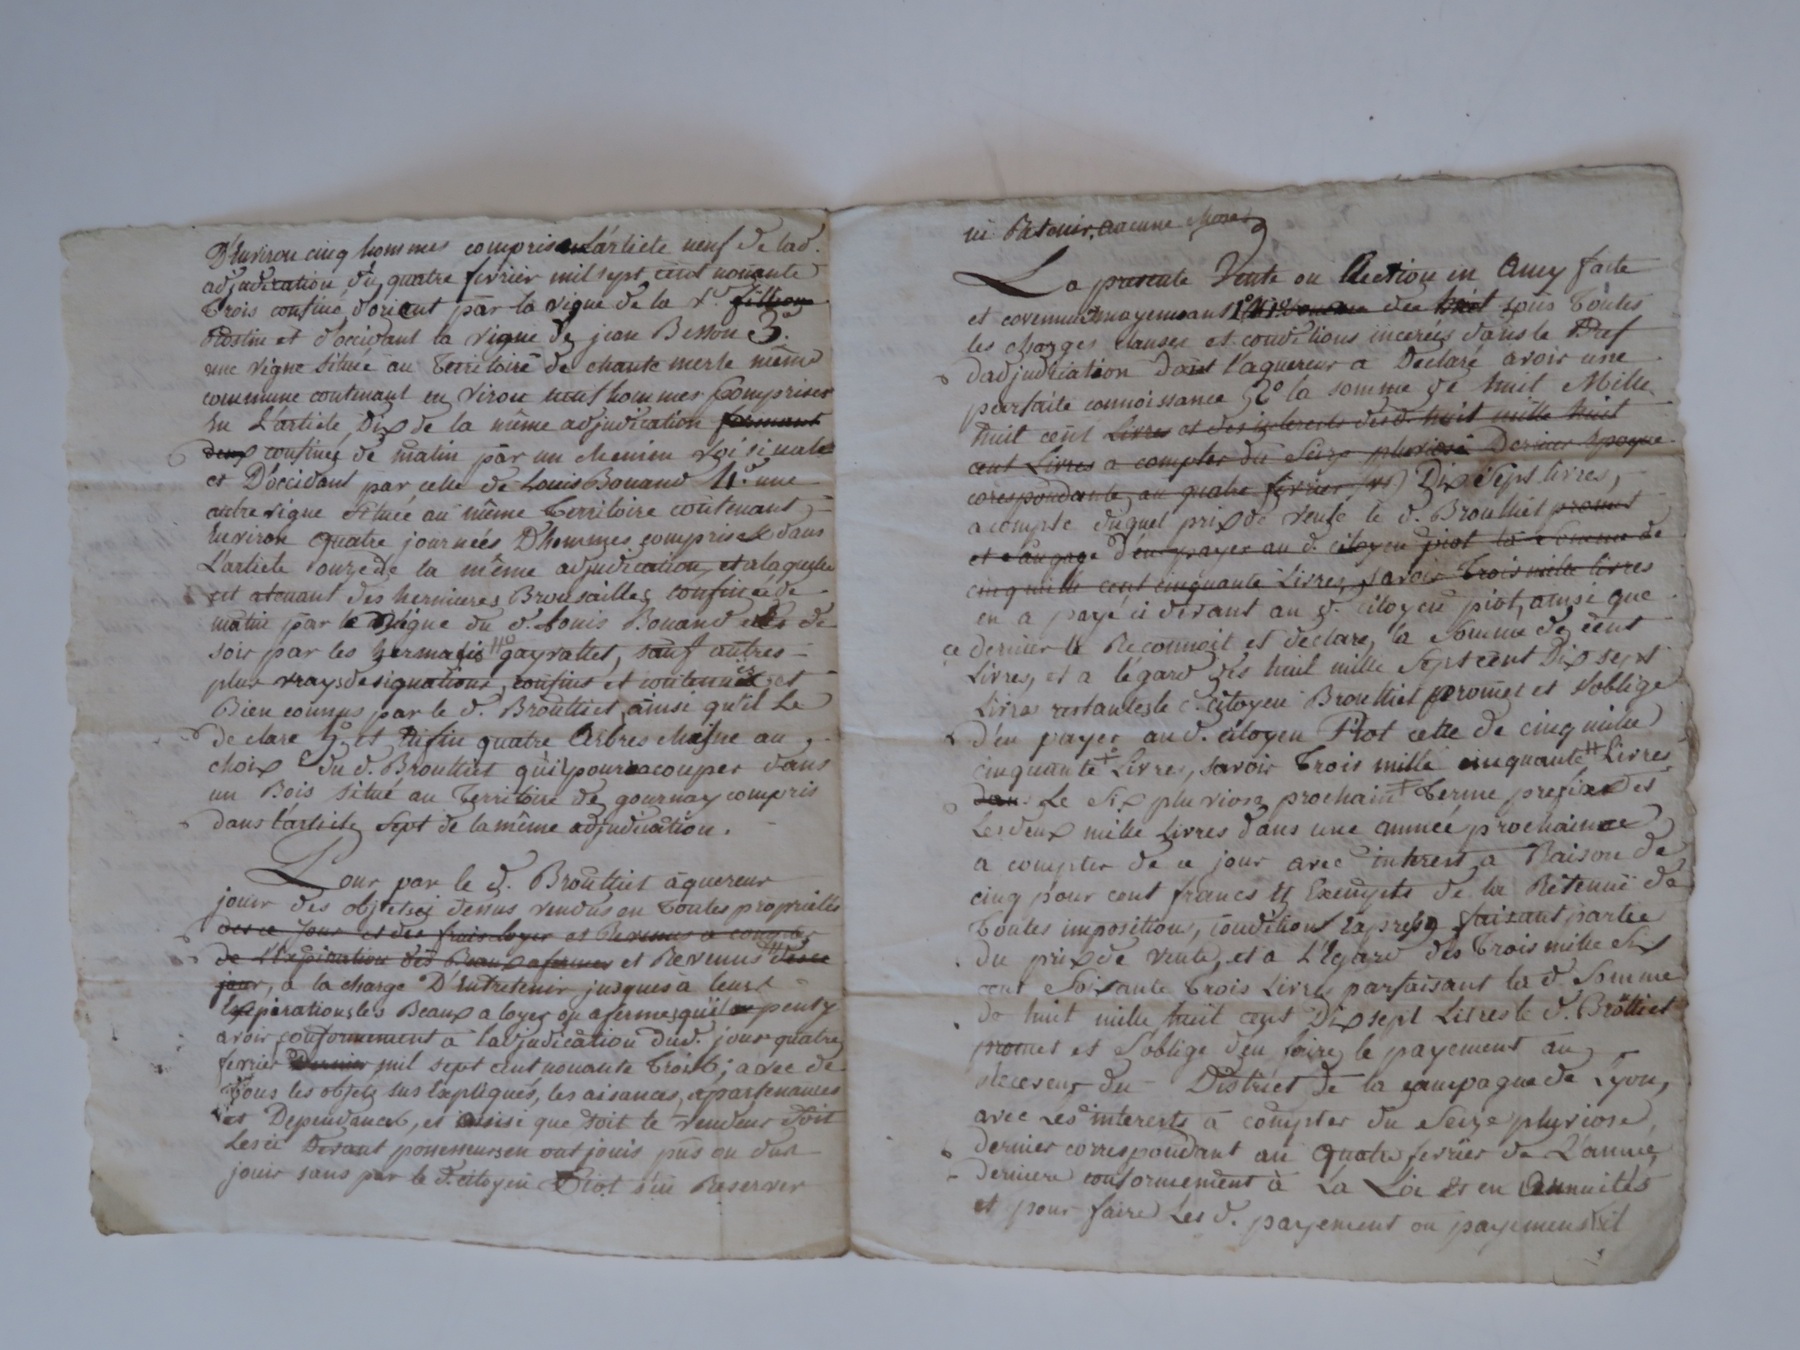 D'Environ cinq hommes comprise en L'article neuf de lad.
adjudication du quatre fevrier mil sept cent nonante
Trois confiné d'orient par la vigne de la Ve. fillion
et d'occidant la vigne de jean Besson 3°.
une vigne située au Territoire de chante merle même
commune contenant en viron neuf hommes Comprises
En L'article Dix de la même adjudication formant
deux confinés de matin par un chemin voisinale
et D'occidant par celle de Louis Bonand 4°. une
autre vigne située au même Territoire contenant
Environ Quatre journées D'hommes comprise dans
L'article onze de la même adjudication, et a laquelle
est atenant des hermieres Brousailles confinée de
matin par le vigne du d. Louis Bonand et de
soir par les hermages gayrattet, sauf autres
plus vrays designations, confins et contenues et
Bien connus par le d. Brouthiet ainsi qu'il Le
declare 5°. et Enfin quatre Arbres chaîne au
choix du d. Brouthiet qu'il poura couper dans
un Bois situé au Territoire de gournay compris
dans l'article Sept de la même adjudication.
Pour par le d. Brouthiet aquereur
jouir des objets ci dessus vendus en Toutes proprietés
des ce Jour et des frais loyer et Revenus a compter
de l'Expiration des Beaux a fermes et Revenus des ce
jour, a la charge D'Entretenir jusques à leurs
Expirations les Beaux a loyer ou a ferme qu'il peut y
avoir conformement à l'adjudication dud. jour quatre
fevrier Dernier mil sept cent nonante Trois; avec de
Tous les objets sus Expliqués, les aisances, apartenances
et Dependances, et ainsi que doit le vendeur doit
Les ci Devant possesseurs en ont jouis pus ou dus
jouir sans par le d. citoyen Piot s'en Reserver
ni Retenir aucune chose
La presente Vente ou Election en Amy faite
et convenue moyennant 1° des huit sous Toutes
les charges clauses et conditions incerées dans le Pref
d'adjudication dont l'aquereur a Declaré avoir une
parfaite connoissance 2° la somme de huit Mille
huit cent Livres et des interests desd. huit mille huit
cent Livres a compter du Seize pluviose Dernier Epoque
corespondante au quatre fevrier (vs) Dix Sept livres,
a compte duquel prix de vente le d. Brouthiet promet
et s'engage d'en payer au d. citoyen piot la somme de
cinq mille cent cinquante Livres, savoir Trois mille livres
en a payé ci devant au d. Citoyen piot, ainsi que
ce dernier le Reconnoit et declare, la Somme de cent
Livres, et a l'égard des huit mille Sept cent Dix sept
Livres restantes le d. citoyen Brouthiet promet et s'oblige
d'en payer au d. citoyen Piot celle de cinq mille
cinquante Livres, savoir Trois mille cinquante Livres
dans Le Six pluviose prochain Terme prefixe et
Les deux mille Livres dans une année prochaine
a compter de ce jour avec interest a Raison de
cinq pour cent francs et Exempts de la Retenuë de
Toutes impositions, conditions Expresse faisant partie
du prix de vente, et a L'Egard des Trois mille Six
cent Soixante Trois Livres parfaisant la d. Somme
de huit mille huit cent Dix sept Livres le d. Brôttiet
promet et s'oblige d'en faire le payement au
Receveur du District de la campagne de Lyon,
avec Les interests à compter du Seize pluviose
dernier correspondant au Quatre fevrier de L'année
derniere conformement à La Loi et en Annuités
et pour faire Les d. payement ou payemens il